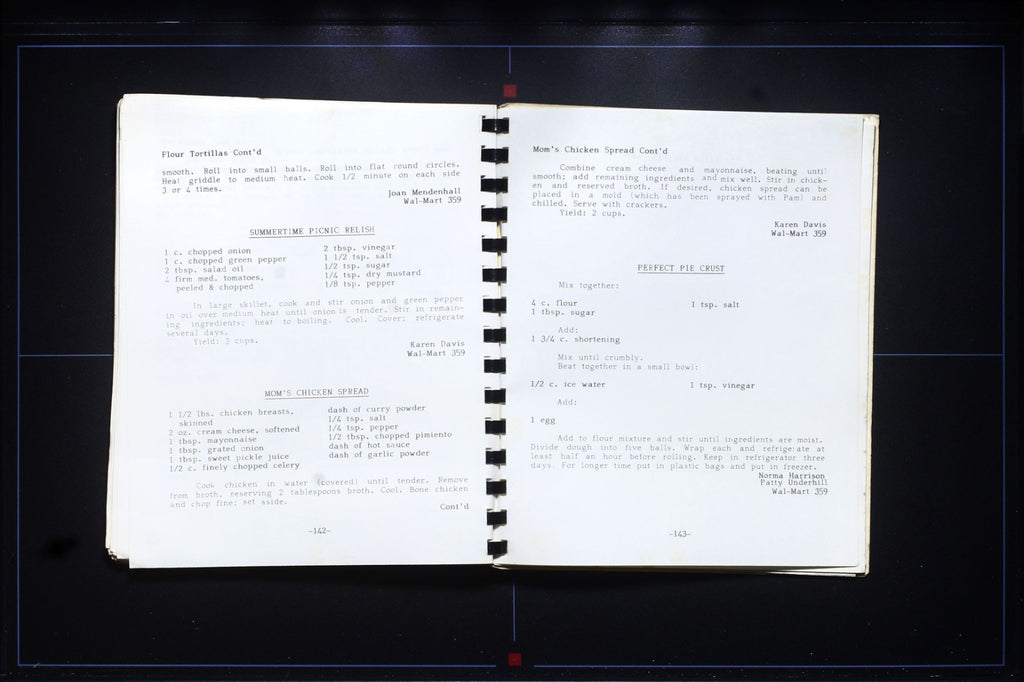 Flour Tortillas Cont'd
smooth. Roll into small balls. Roll into flat round circles.
Heat griddle to medium heat. Cook 1/2 minute on each side
3 or 4 times.
Joan Mendenhall
Wal-Mart 359
SUMMERTIME PICNIC RELISH
1 c. chopped onion
1 c. chopped green pepper
2 tbsp. salad oil
4 firm med. tomatoes,
peeled & chopped
2 tbsp. vinegar
1 1/2 tsp. salt
1/2 tsp. sugar
1/4 tsp. dry mustard
1/8 tsp. pepper
In large skillet, cook and stir onion and green pepper
in oil over medium heat until onion is tender. Stir in remain-
ing ingredients; heat to boiling. Cool. Cover; refrigerate
several days.
Yield: 3 cups.
Karen Davis
Wal-Mart 359
MOM'S CHICKEN SPREAD
1 1/2 lbs. chicken breasts,
skinned
2 oz. cream cheese, softened
1 tbsp. mayonnaise
1 tbsp. grated onion
1 tbsp. sweet pickle juice
1/2 c. finely chopped celery
dash of curry powder
1/4 tsp. salt
1/4 tsp. pepper
1/2 tbsp. chopped pimiento
dash of hot sauce
dash of garlic powder
Cook chicken in water (covered) until tender. Remove
from broth, reserving 2 tablespoons broth. Cool. Bone chicken
and chop fine; set aside.
Cont'd
-142-
Mom's Chicken Spread Cont'd
Combine cream cheese and mayonnaise, beating until
smooth; add remaining ingredients and mix well. Stir in chick-
en and reserved broth. If desired, chicken spread can be
placed in a mold (which has been sprayed with Pam) and
chilled. Serve with crackers.
Yield: 2 cups.
Karen Davis
Wal-Mart 359
PERFECT PIE CRUST
Mix together:
4 c. flour
1 tbsp. sugar
1 tsp. salt
Add:
1 3/4 c. shortening
Mix until crumbly.
Beat together in a small bowl:
1/2 c. ice water
1 tsp. vinegar
Add:
1 egg
Add to flour mixture and stir until ingredients are moist.
Divide dough into five balls. Wrap each and refrigerate at
least half an hour before rolling. Keep in refrigerator three
days. For longer time put in plastic bags and put in freezer.
Norma Harrison
Patty Underhill
Wal-Mart 359
-143-